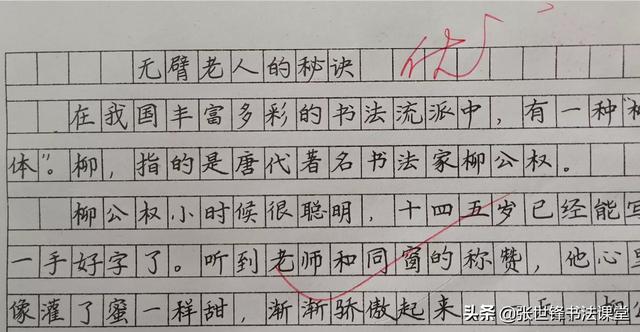 无臂老人的秘诀 优
在我国丰富多彩的书法流派中，有一种“柳
体”。柳，指的是唐代著名书法家柳公权。
柳公权小时候很聪明，十四五岁已经能写
一手好字了。听到老师和同窗的称赞，他心里
像灌了蜜一样甜，渐渐骄傲起来
头条 @张世锋书法课堂